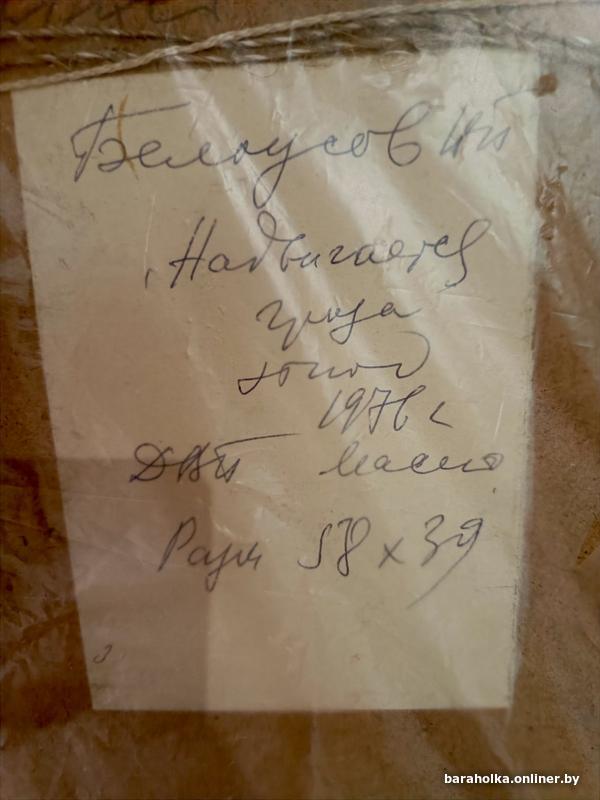 Белоусов
Надвигается
гроза
этюд
1976 г
ДВП масло
Разм 58 х 39
baraholka.onliner.by